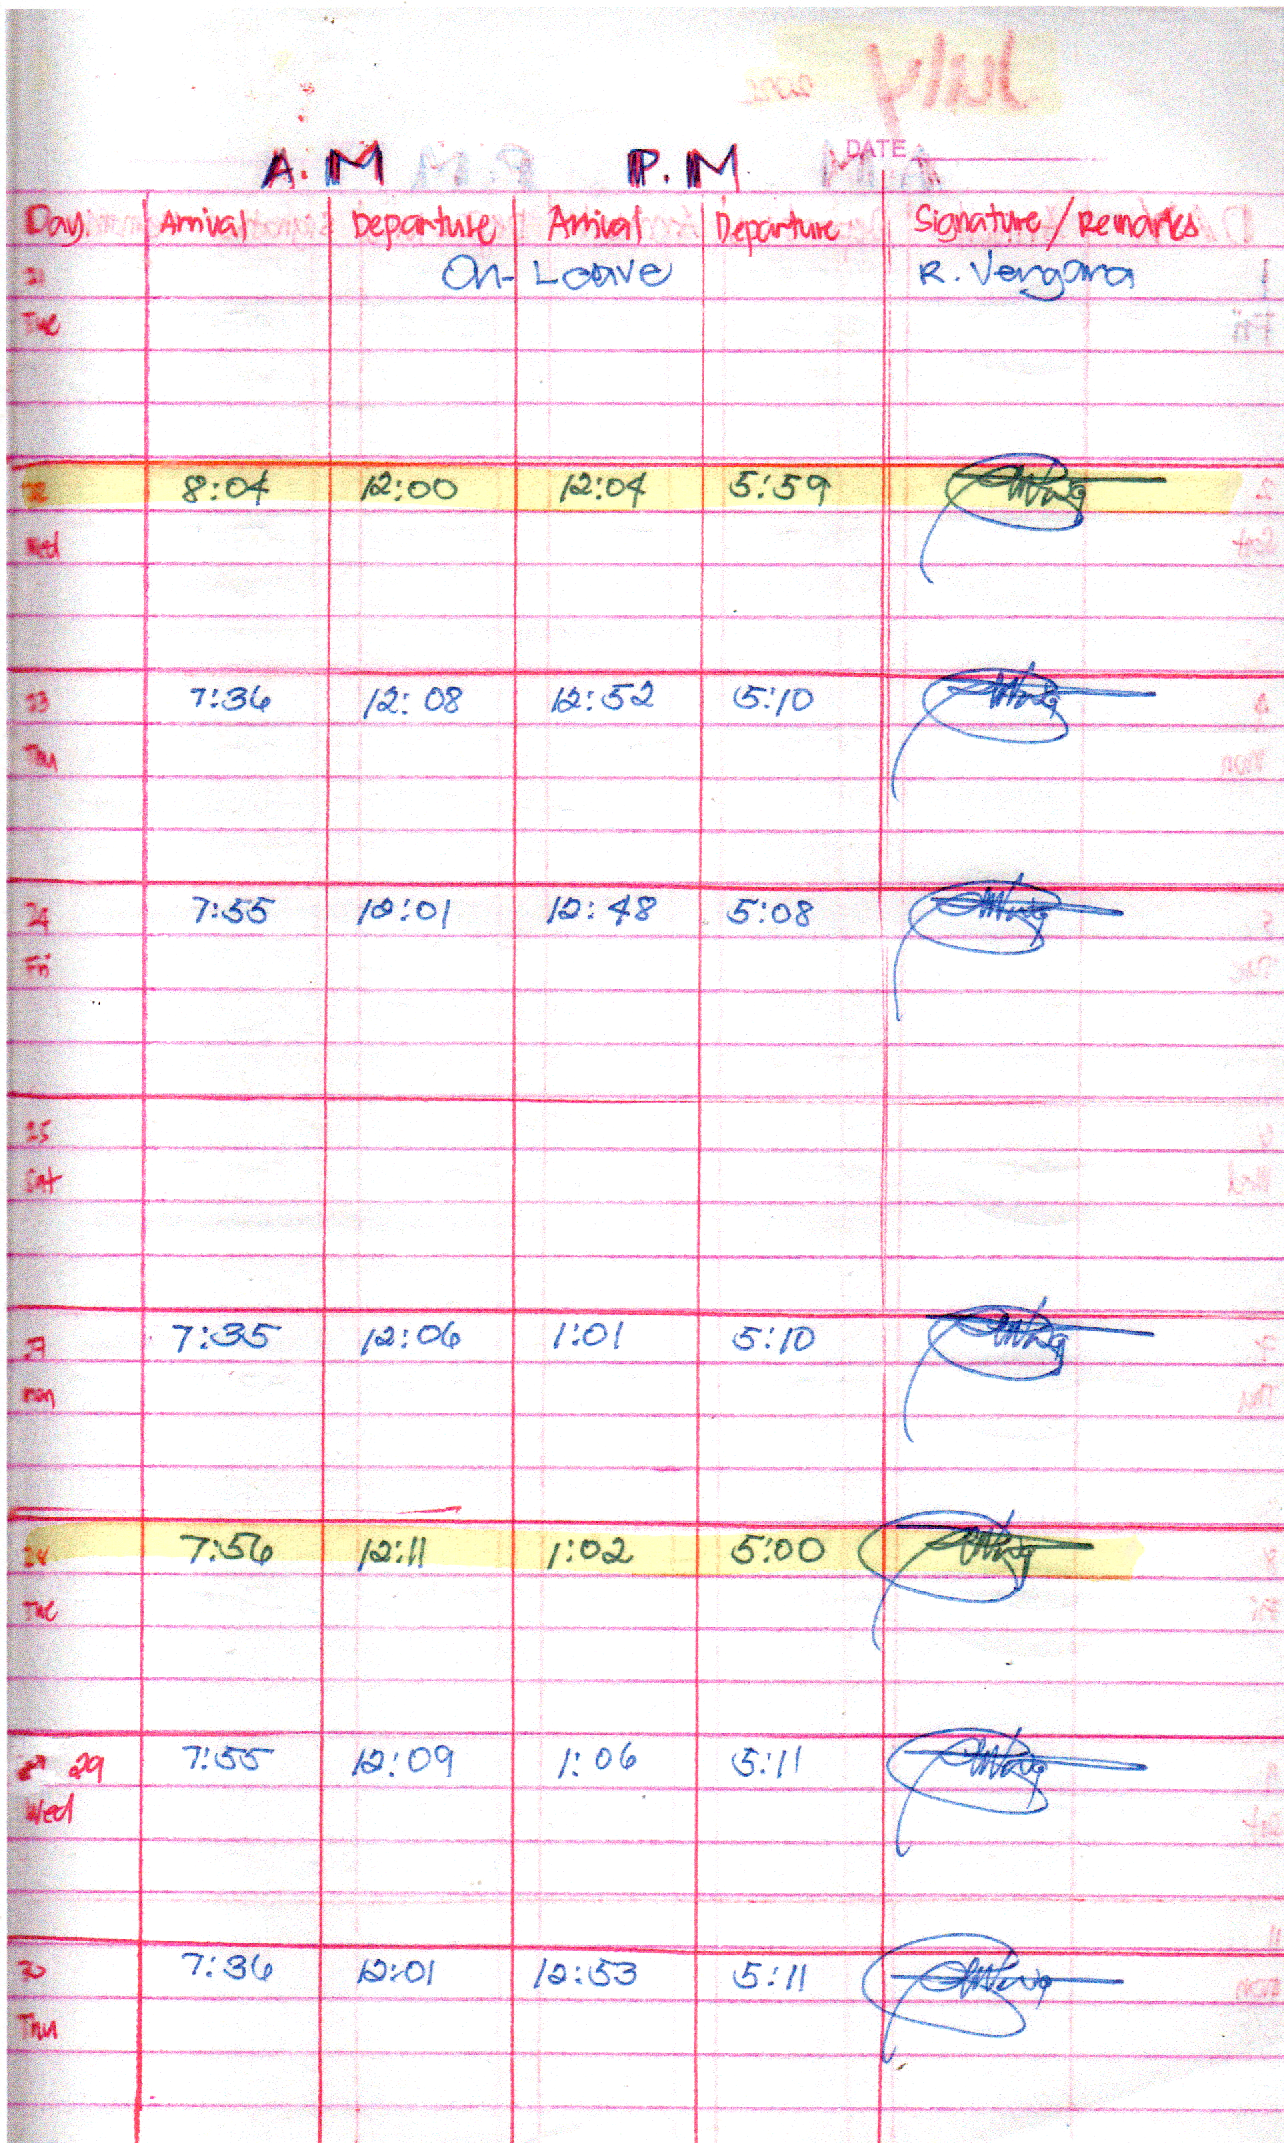 DATE
A.M P.M
Day Arrival Departure Arrival Departure Signature/Remarks
21 On-Leave R. Vergara
Tue
22 8:04 12:00 12:04 5:59
Wed
23 7:36 12:08 12:52 5:10
Thu
24 7:55 12:01 12:48 5:08
Fri
25
Sat
27 7:35 12:06 1:01 5:10
Mon
28 7:56 12:11 1:02 5:00
Tue
29 7:55 12:09 1:06 5:11
Wed
30 7:36 12:01 12:53 5:11
Thu